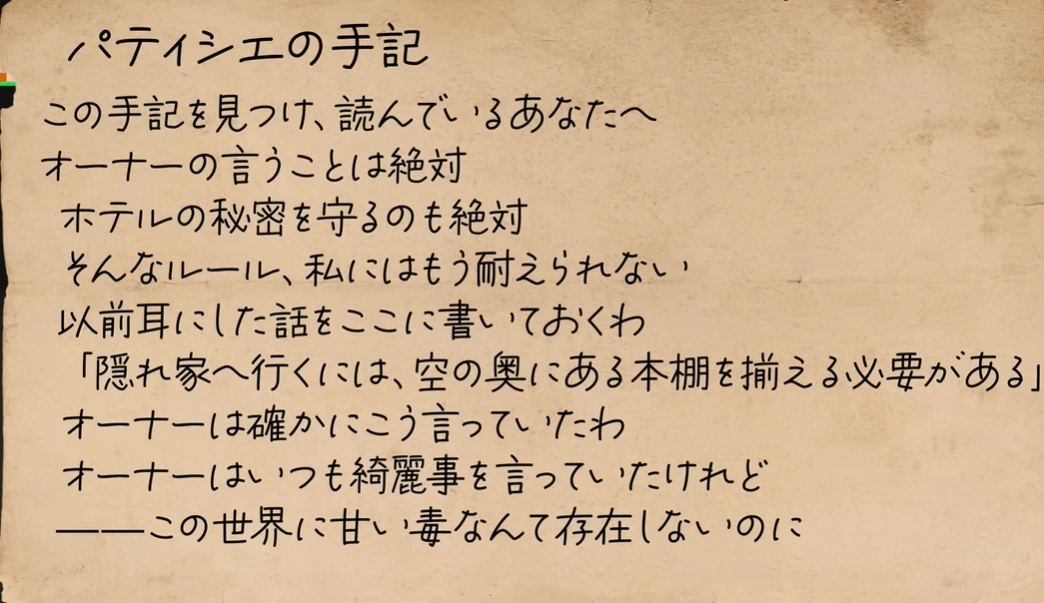 パティシエの手記
この手記を見つけ、読んでいるあなたへ
オーナーの言うことは絶対
ホテルの秘密を守るのも絶対
そんなルール、私にはもう耐えられない
以前耳にした話をここに書いておくわ
「隠れ家へ行くには、空の奥にある本棚を揃える必要がある」
オーナーは確かにこう言っていたわ
オーナーはいつも綺麗事を言っていたけれど
――この世界に甘い毒なんて存在しないのに